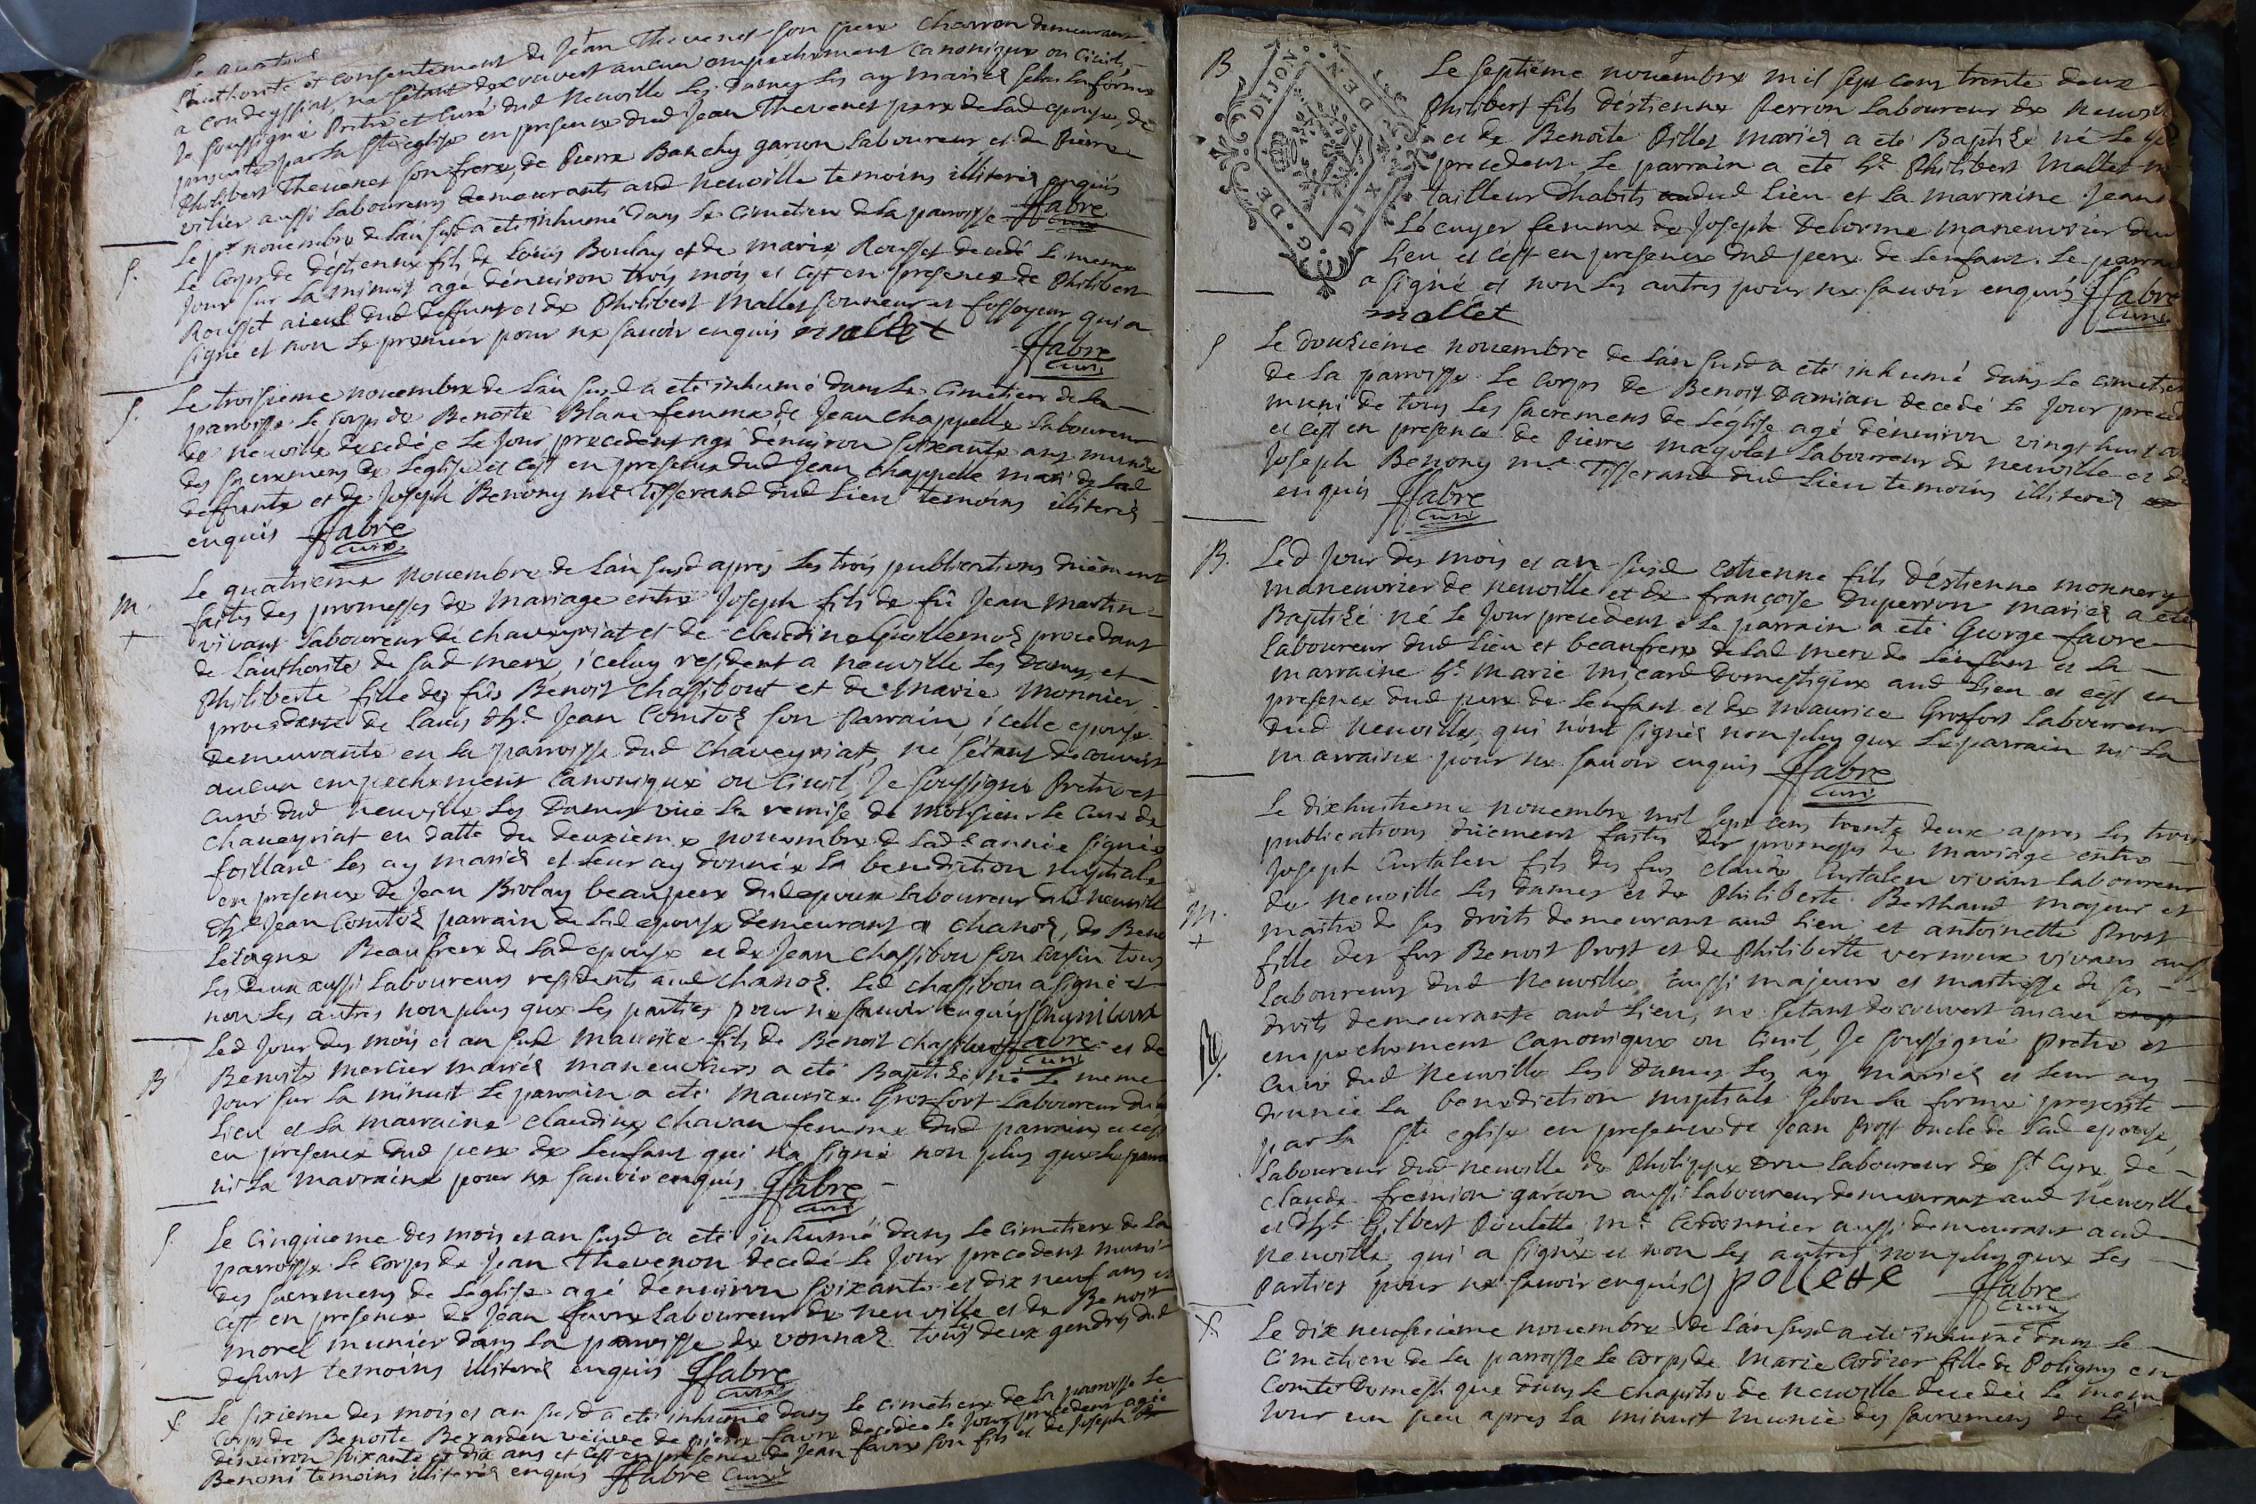 l'authorité et consentement de Jean Thevenet son pere charron demeurant
a condeyssiat, ne s'etant decouvert aucun empechement canonique ou civil,
Je soussigné Pretre et Curé dud Neuville Les Dames Les ay mariés selon la forme
prescrite par la Ste eglise en presence dud Jean Thevenet pere de lad epouse, de
Philibert Thevenet son frere, de Pierre Banchy garçon laboureur et de Pierre
vilier aussi laboureurs demeurants aud Neuville temoins illiterés enquis
Ffabre
curé
S.
Le pr novembre de l'an susd a eté inhumé dans le cimetiere de la parroisse
Le corps d'estienne fils de Loüis Boulay et de marie Rousset decedé le meme
Jour sur la minuit agé d'environ trois mois et c'est en presence de Philibert
Rousset aieul dud deffunt et de Philibert Mallet sonneur et fossoyeur qui a
signé et non le premier pour ne savoir enquis mallet
Ffabre
curé
S.
Le troisieme novembre de l'an susd a eté inhumé dans le cimetiere de la
parroisse le corps de Benoite Blanc femme de Jean chappelle laboureur
de neuville decedée le Jour precedent agé d'environ soixante ans munie
des sacremens de L'eglise et c'est en presence dud Jean chappelle mari de lad
deffunte et de Joseph Benony me Tisserand dud Lieu temoins illiterés
enquis Ffabre
curé
M.
+
Le quatrieme novembre de l'an susd apres Les trois publications düement
faites des promesses de mariage entre Joseph fils de fü Jean Martin
vivant laboureur de chaveyriat et de claudine Guillemot procedant
de l'authorité de sad mere iceluy resident a neuville les Dames, et
Philiberte fille des füs Benoit chassibout et de Marie Monnier
procedante de l'avis d'hte Jean Comtoz son Parrain icelle epouse
demeurante en la parroisse dud chaveyriat, ne s'etant decouvert
aucun empechement canonique ou Civil, Je soussigné Pretre et
curé dud Neuville Les Dames vüe la remise de Monsieur le Curé de
chaveyriat en datte du deuxieme novembre de lade année signée
foillard Les ay mariés et leur ay donnée la benediction nuptiale
en presence de Jean Biolay beaupere dud epoux laboureur dud Neuville
d'hte Jean Comtoz parrain de lad epouse demeurant a chanoz, de Benoit
Letogne Beaufrere de lad epouse et de Jean Chassibou son cousin tous
Les deux aussi laboureurs residents aud chanoz. Led chassibou a signé et
non les autres non plus que les parties pour ne savoir enquis
Ffabre
curé
B
Led Jour des mois et an susd Maurice fils de Benoit et de
Benoite Mercier mariés maneuvriers a eté Baptizé né le meme
Jour sur la minuit le parrain a eté Maurice Grosfort Laboureur dud
Lieu et la marraine claudine Chavan femme dud parrain et c'est
en presence dud pere de L'enfant qui n'a signé non plus que le parrain
ni la marraine pour ne sauvoir enquis Ffabre
curé
S
Le Cinquieme des mois et an susd a eté inhumé dans le cimetiere de la
parroisse le corps de Jean Thevenon decedé le Jour precedent muni
des sacremens de L'eglise agé d'environ soixante et dix neuf ans et
c'est en presence de Jean favre laboureur de neuville et de Benoit
Morel munier dans la parroisse de vonnaz tous Les deux gendres dud
defunt temoins illiterés enquis Ffabre
curé
S
Le sixieme des mois et an susd a eté inhumé dans le cimetiere de la parroisse le
corps de Benoite Berarden veuve de pierre favre decedée le Jour precedent agée
d'environ soixante et dix ans et c'est en presence de Jean favre son fils et de Joseph
Benoni temoins illiterés enquis Ffabre curé
B.
G. DE DIJON
DIX DEN
Le septieme novembre mil sept cens trente deux
Philibert fils d'estienne Perron Laboureur de Neuville
et de Benoite Pillet mariés a eté Baptizé né le
precedent, Le parrain a eté ht Philibert Mallet
tailleur d'habits dud lieu et la marraine Jeanne
Lécuyer femme de Joseph Delorme maneuvrier dud
Lieu et c'est en presence dud pere de L'enfant. Le parrain
a signé et non les autres pour ne savoir enquis Ffabre
mallet
curé
S
Le douzieme novembre de l'an susd a eté inhumé dans le cimetiere
de la parroisse le corps de Benoit Damian decedé le Jour precedent
muni de tous les sacremens de L'eglise agé d'environ vingt huit ans
et c'est en presence de Pierre Magolet Laboureur de neuville et de
Joseph Benony me Tisserand dud Lieu temoins illiterés
enquis Ffabre
curé
B.
Led Jour des mois et an susd Estienne fils d'Estienne Monnery
maneuvrier de neuville et de françoise Duperron mariés a eté
Baptizé né le Jour precedent. Le parrain a eté George favre
laboureur dud Lieu et beaufrere de lad mere de L'enfant et la
marraine hte Marie Micard domestique aud Lieu et c'est en
presence dud pere de L'enfant et de Maurice Grosfort laboureur
dud Neuville, qui n'ont signés non plus que le parrain ni la
marraine pour ne savoir enquis Ffabre
curé
M.
+
Le dixhuitieme novembre mil sept cens trente deux apres les trois
publications düement faites des promesses de mariage entre
Joseph Curtalen fils des fus claude Curtalen vivant laboureur
de Neuville Les dames et de Philiberte Berthaud majeur et
maitre de ses droits demeurant aud Lieu et antoinette Prost
fille des fus Benoit Prost et de Philiberte vernoux vivans aussi
Laboureurs dud Neuville aussi majeure et maitresse de ses
droits demeurante aud Lieu, ne s'etant decouvert aucun
empechement Canonique ou Civil, Je soussigné Pretre et
Curé dud Neuville les Dames Les ay mariés et leur ay
donnée la benediction nuptiale selon la forme prescrite
par la Ste eglise en presence de Jean Prost oncle de lad epouse,
Laboureur dud neuville de Philippe Dru laboureur de St Cyre, de
claude fremion garcon aussi Laboureur demeurant aud Neuville
et d'ht Gilbert Poulette me Cordonnier aussi demeurant aud
Neuville, qui a signé et non les autres non plus que les
Parties pour ne savoir enquis G polette Ffabre
curé
S.
Le dix neufvieme novembre de l'an susd a eté inhumé dans le
Cimetiere de la parroisse le corps de Marie Cordier fille de Poligny en
Comté Domestique dans le chapitre de neuville decedée le meme
Jour un peu apres la minuit munie des sacremens de L'e